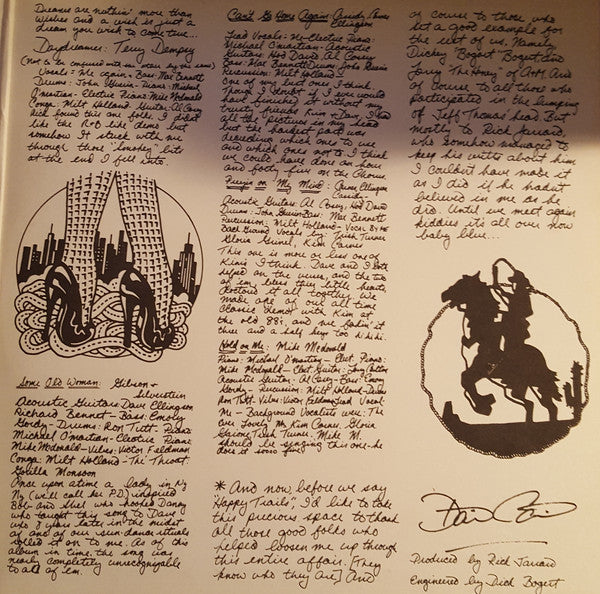 Dreams are nuthin' more than
wishes and a wish is just a
dream you wish to come true...
Daydreamer: Terry Dempsey
(Not to be confused with no other by the same)
Vocals: Me again - Bass: Max Bennett
Drums: John Guerin - Piano: Michael
O'martian - Electric Piano: Mike McDonald
Conga: Milt Holland - Guitar: Al C
Rich found this one folks. I didn't
like the hot like demo but
somehow it stuck with me
through those "Smokey" bits
at the end I fell into.
Some Old Woman: Gibson &
Silverstein
Acoustic Guitars: Dave Ellingson
Richard Bennet - Bass: Emory
Gordy - Drums: Ron Tutt - Piano:
Michael O'martian - Electric Piano:
Mike McDonald - Vibes: Victor Feldman
Conga: Milt Holland - The Throat:
Gorilla Monsoon
Once upon a time a lady in N.Y.
N.Y. (we'll call her P.D.) inspired
Bob and Shel who hooked Danny
who taught this song to Dave
who 8 years later in the midst
of one of our sun-dance rituals
rolled it on to me. As of this
album in time, the song was
nearly completely unrecognizable
to all of em.
Can't Go Home Again: Cassidy, Carnes
Ellingson
Lead Vocals: Me - Electric Piano:
Michael O'martian - Acoustic
Guitars: Her Dave & Al Casey
Bass: Max Bennett Drums: John Guerin
Percussion: Milt Holland
One of my best ones I think.
Though I doubt if I ever would
have finished it without my
trusty friends Kim & Dave. I had
all the pictures in my head
but the hardest part was
deciding which ones to use
and which ones not to. I think
we could have done an hour
and forty five on the Chorus
Preyin on My Mind: Carnes Ellingson
Cassidy
Acoustic Guitars: Al Casey, Her Dave
Drums: John Guerin Bass: Max Bennett
Percussion: Milt Holland - Vocal By Me
Back Ground Vocals By: Trish Turner
Gloria Grinel, Kim Carnes
This one is more or less one of
Kim's I think. Dave and I both
helped on the verses, and the two
of em, bless their little hearts,
doctored it all together. We
made one of our all time
Classic demos with Kim at
the old 88s, and me fadin' it
three and a half keys too hi hi hi.
Hold on Me: Mike McDonald
Piano: Michael O'martian - Elect. Piano:
Mike McDonald - Elect Guitar: Larry Carlton
Acoustic Guitar: Al Casey - Bass: Emory
Gordy - Percussion: Milt Holland - Drums:
Ron Tutt - Vibes: Victor Feldman Lead Vocal:
Me - Background Vocalists were: The
Ever Lovely Ms Kim Carnes, Gloria
Grinel, Trish Turner. Mike M.
should be singing this one - he
does it sooo fine
* And now before we say
"Happy Trails", I'd like to take
this precious space to thank
all those good folks who
helped loosen me up through
this entire affair. [They
know who they are] And
of course to those who
set a good example for
the rest of us. Namely
Dickey "Bogert" Bogert and
Larry "The Honey" of A&M. And
of course to all those who
participated in the lumping
of Jeff Thomas' head. But
mostly to Rick Jarrard,
who somehow managed to
keep his withs about him
I couldn't have made it
as I did if he hadn't
believed in me as he
did. Until we meet again
kiddies it's all over now
baby blue...
Produced by Rick Jarrard
Engineered by Dick Bogert